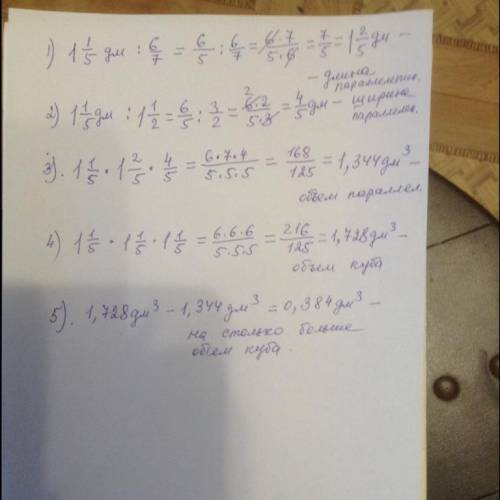 1) 1 1/5 дм : 6/7 = 6/5 : 6/7 = 6·7/5·6 = 7/5 = 1 2/5 дм –
– длина
параллелепип.
2) 1 1/5 дм : 1 1/2 = 6/5 : 3/2 = 2 6·2/5·3 = 4/5 дм – ширина
параллел.
3). 1 1/5 · 1 2/5 · 4/5 = 6·7·4/5·5·5 = 168/125 = 1,344 дм³ –
объем параллел.
4) 1 1/5 · 1 1/5 · 1 1/5 = 6·6·6/5·5·5 = 216/125 = 1,728 дм³ –
объем куба
5). 1,728 дм³ – 1,344 дм³ = 0,384 дм³ –
на столько больше
объем куба.